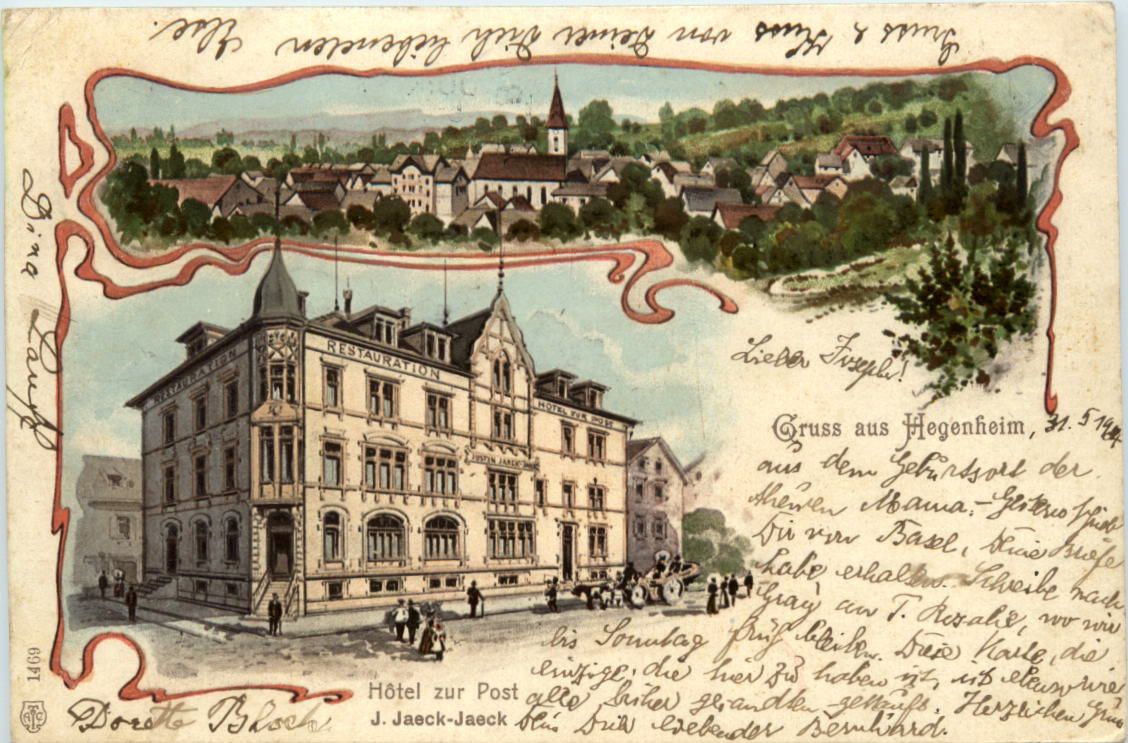 Gruss & Kuss von Deiner Dich liebenden Ilse.
Dina
RESTAURATION
RESTAURATION
HOTEL ZUR POST
JUSTIN JAECK-JAECK
Lieber Joseph!
Gruss aus Hegenheim, 31. 5 19
aus dem Geburtsort der
theuren Mama. Gestern schrieb
Dir von Basel, Deine Briefe
habe erhalten. Schreibe nach
Gray an T. Rosalie, wo wir
bis Sonntag früh bleiben. Diese Karte, die
einzige, die hier zu haben ist, ist ebenso wie
alle bisher gesandten gekauft. Herzlichen Gruss
Dein Dich liebender Bernhard.
Hôtel zur Post
J. Jaeck-Jaeck
Dorette Bloch
1469